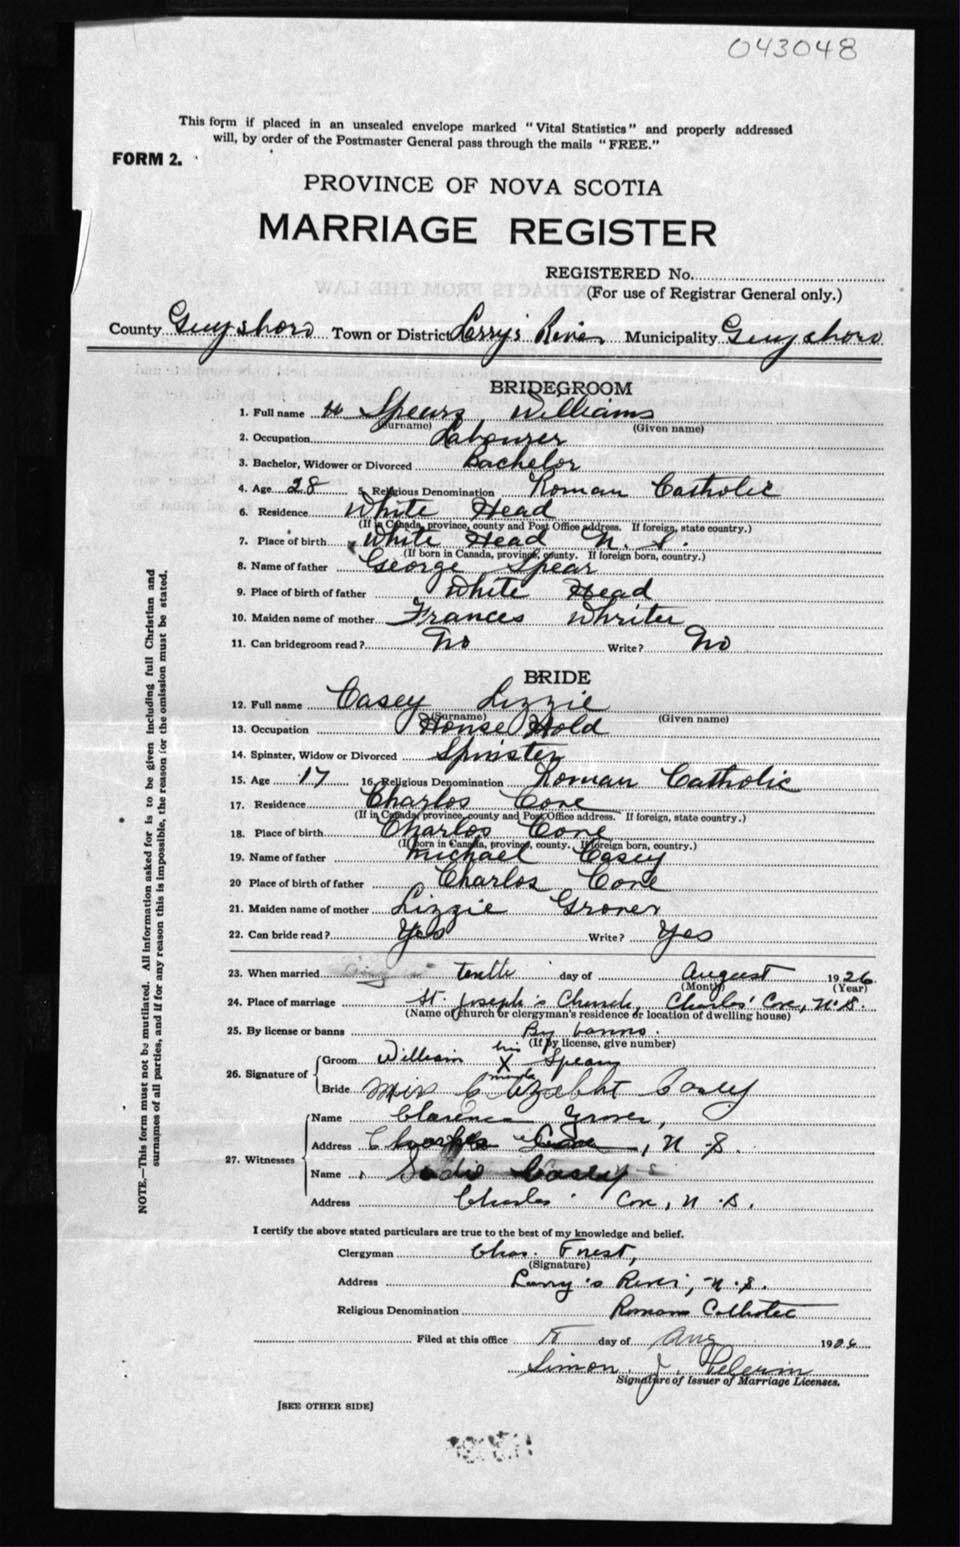 043048
This form if placed in an unsealed envelope marked "Vital Statistics" and properly addressed
will, by order of the Postmaster General pass through the mails "FREE."
FORM 2.
PROVINCE OF NOVA SCOTIA
MARRIAGE REGISTER
REGISTERED No.
(For use of Registrar General only.)
County Guysboro Town or District Larry's River Municipality Guysboro
BRIDEGROOM
1. Full name Spears Williams
(Surname) (Given name)
2. Occupation Labourer
3. Bachelor, Widower or Divorced Bachelor
4. Age 28 5. Religious Denomination Roman Catholic
6. Residence White Head
(If in Canada, province, county and Post Office address. If foreign, state country.)
7. Place of birth White Head N. S.
(If born in Canada, province, county. If foreign born, country.)
8. Name of father George Spear
9. Place of birth of father White Head
10. Maiden name of mother Frances
11. Can bridegroom read? No Write? No
BRIDE
12. Full name Casey Lizzie
(Surname) (Given name)
13. Occupation House Hold
14. Spinster, Widow or Divorced Spinster
15. Age 17 16. Religious Denomination Roman Catholic
17. Residence Charlos Cove
(If in Canada, province, county and Post Office address. If foreign, state country.)
18. Place of birth Charlos Cove
(If born in Canada, province, county. If foreign born, country.)
19. Name of father Michael Casey
20 Place of birth of father Charlos Cove
21. Maiden name of mother Lizzie Grover
22. Can bride read? Yes Write? Yes
23. When married tenth day of August 1926
(Month) (Year)
24. Place of marriage St. Joseph's Church, Charlos' Cove, N.S.
(Name of church or clergyman's residence or location of dwelling house)
25. By license or banns By banns.
(If by license, give number)
26. Signature of
Groom William his X mark Spears
Bride Miss Elizabeht Casey
27. Witnesses
Name Clarence Grover,
Address Charlos Cove, N.S.
Name Sadie Casey
Address Charlos' Cove, N.S.
I certify the above stated particulars are true to the best of my knowledge and belief.
Clergyman Chas. Forest,
(Signature)
Address Larry's River, N.S.
Religious Denomination Roman Catholic
Filed at this office day of Aug 1926
Simon J. Pelerin
Signature of Issuer of Marriage Licenses.
[SEE OTHER SIDE]
NOTE.—This form must not be mutilated. All information asked for is to be given including full Christian and
surnames of all parties, and if for any reason this is impossible, the reason for the omission must be stated.